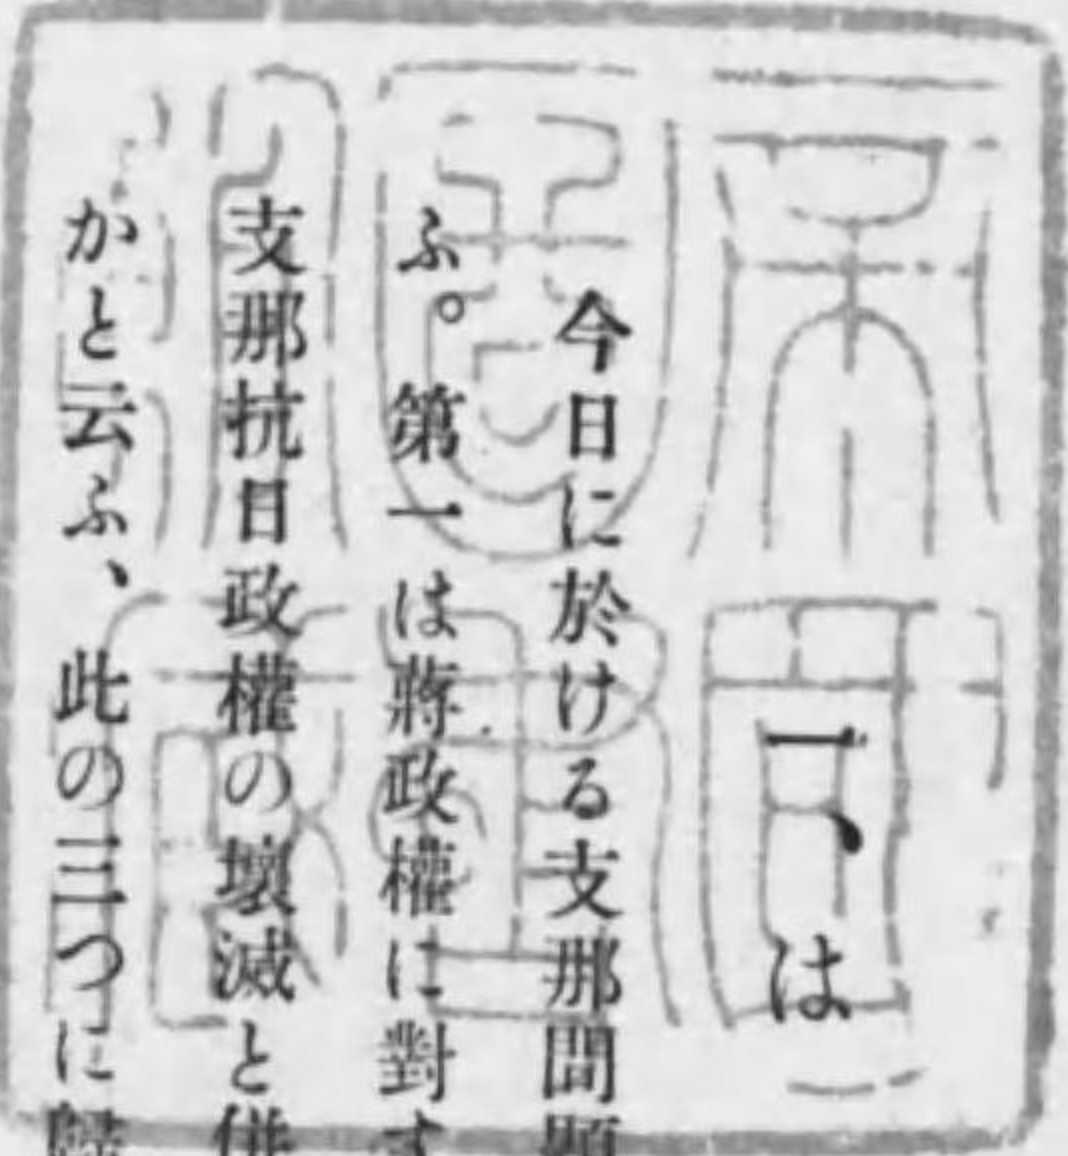 一、は
今日に於ける支那問題
ふ。第一は蔣政權に對す
支那抗日政權の壞滅と併
かと云ふ、此の三つに歸